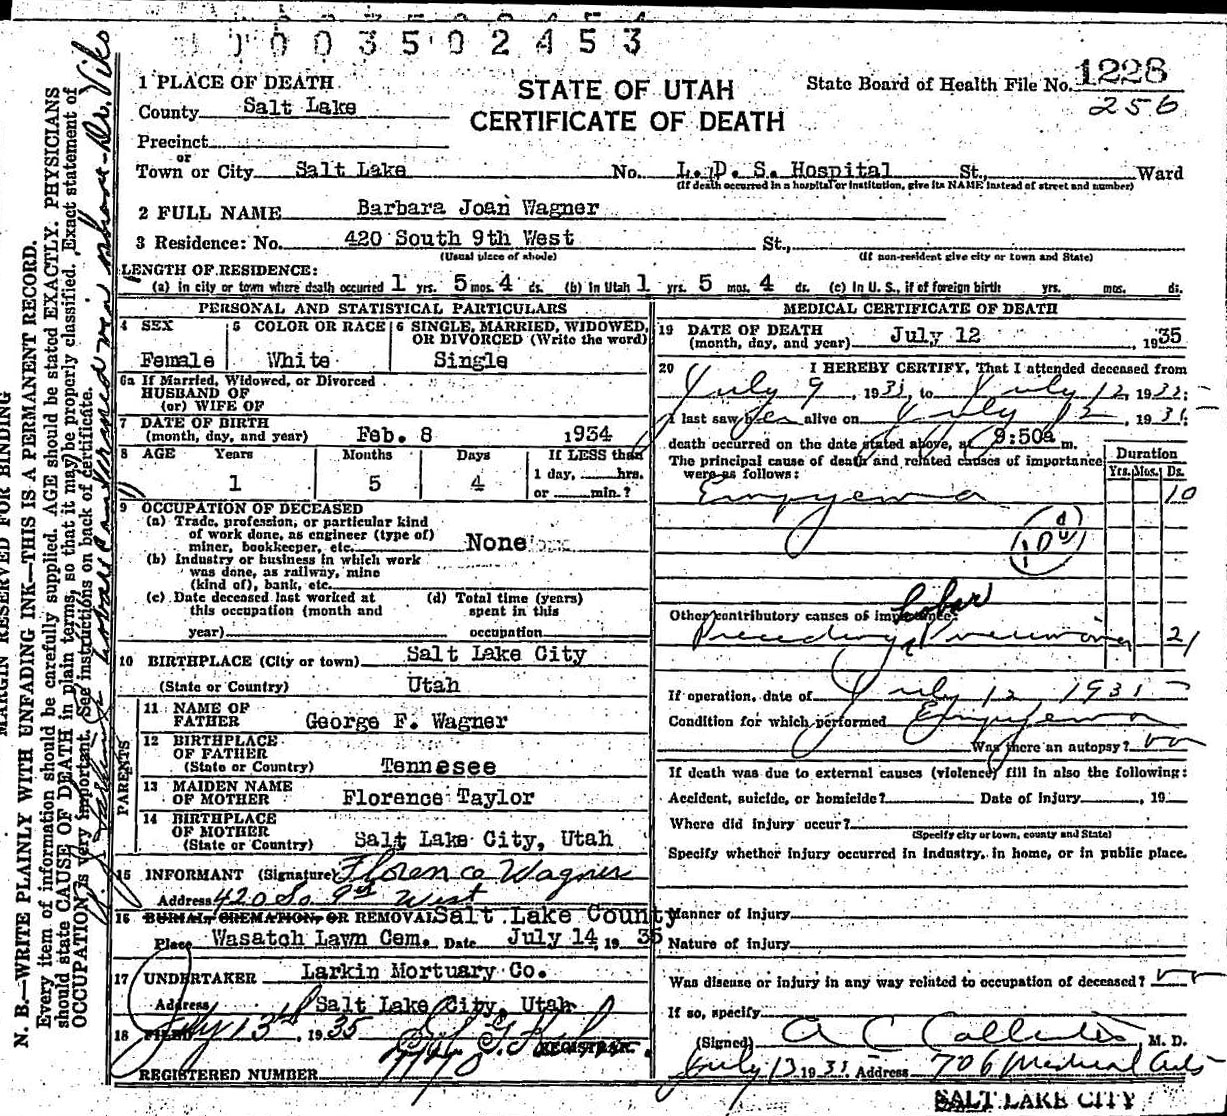 1 0 0 3 5 0 2 4 5 3
1 PLACE OF DEATH
County Salt Lake
Precinct
or
Town or City Salt Lake
STATE OF UTAH
CERTIFICATE OF DEATH
State Board of Health File No. 1228
256
No. L. D. S. Hospital St., Ward
(If death occurred in a hospital or institution, give its NAME instead of street and number)
2 FULL NAME Barbara Joan Wagner
3 Residence: No. 420 South 9th West St.,
(Usual place of abode) (If non-resident give city or town and State)
LENGTH OF RESIDENCE:
(a) in city or town where death occurred 1 yrs. 5 mos. 4 ds. (b) In Utah 1 yrs. 5 mos. 4 ds. (c) In U. S., if of foreign birth yrs. mos. ds.
PERSONAL AND STATISTICAL PARTICULARS
4 SEX 5 COLOR OR RACE 6 SINGLE, MARRIED, WIDOWED,
OR DIVORCED (Write the word)
Female White Single
6a If Married, Widowed, or Divorced
HUSBAND OF
(or) WIFE OF
7 DATE OF BIRTH
(month, day, and year) Feb. 8 1934
8 AGE Years Months Days If LESS than
1 day, hrs.
or min.?
1 5 4
9 OCCUPATION OF DECEASED
(a) Trade, profession, or particular kind
of work done, as engineer (type of)
miner, bookkeeper, etc. None
(b) Industry or business in which work
was done, as railway, mine
(kind of), bank, etc.
(c) Date deceased last worked at
this occupation (month and
year)
(d) Total time (years)
spent in this
occupation
10 BIRTHPLACE (City or town) Salt Lake City
(State or Country) Utah
PARENTS
11 NAME OF
FATHER George F. Wagner
12 BIRTHPLACE
OF FATHER
(State or Country) Tennesee
13 MAIDEN NAME
OF MOTHER Florence Taylor
14 BIRTHPLACE
OF MOTHER
(State or Country) Salt Lake City, Utah
15 INFORMANT (Signature) Florence Wagner
Address 420 So. 9th West
16 BURIAL, CREMATION, OR REMOVAL Salt Lake County
Place Wasatch Lawn Cem. Date July 14, 19 35
17 UNDERTAKER Larkin Mortuary Co.
Address Salt Lake City, Utah
18 FILED July 13th, 1935
REGISTRAR.
REGISTERED NUMBER
MEDICAL CERTIFICATE OF DEATH
19 DATE OF DEATH
(month, day, and year) July 12, 1935
20 I HEREBY CERTIFY, That I attended deceased from
July 9, 1935, to July 12, 1935
I last saw her alive on July 12, 1935
death occurred on the date stated above, at 9:50a m.
The principal cause of death and related causes of importance
were as follows:
Duration
Yrs. Mos. Ds.
Empyema 10
Other contributory causes of importance:
Preceding Lobar Pneumonia 21
If operation, date of July 12 1935
Condition for which performed Empyema
Was there an autopsy? no
If death was due to external causes (violence) fill in also the following:
Accident, suicide, or homicide? Date of injury , 19
Where did injury occur?
(Specify city or town, county and State)
Specify whether injury occurred in industry, in home, or in public place.
Manner of Injury
Nature of injury
Was disease or injury in any way related to occupation of deceased? no
If so, specify
(Signed) A C Callister, M. D.
July 13 1935. Address 706 Medical Arts
SALT LAKE CITY
MARGIN RESERVED FOR BINDING
N. B.—WRITE PLAINLY WITH UNFADING INK—THIS IS A PERMANENT RECORD.
Every item of information should be carefully supplied. AGE should be stated EXACTLY. PHYSICIANS
should state CAUSE OF DEATH in plain terms, so that it may be properly classified. Exact statement of
OCCUPATION is very important. See instructions on back of certificate.